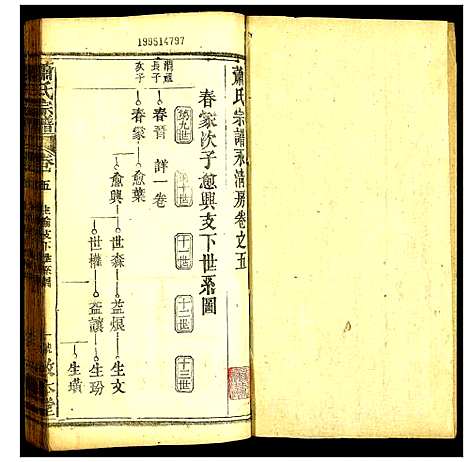 199514797
蕭氏宗譜永清房卷之五
春篆次子愈興支下世系圖
第九世
第十世
十一世
十二世
十三世
長子
次子
春晉 詳一卷
春篆
愈葉
愈興
世森
世權
益烺
益讓
生文
生玢
生璜
蕭氏宗譜
卷之五